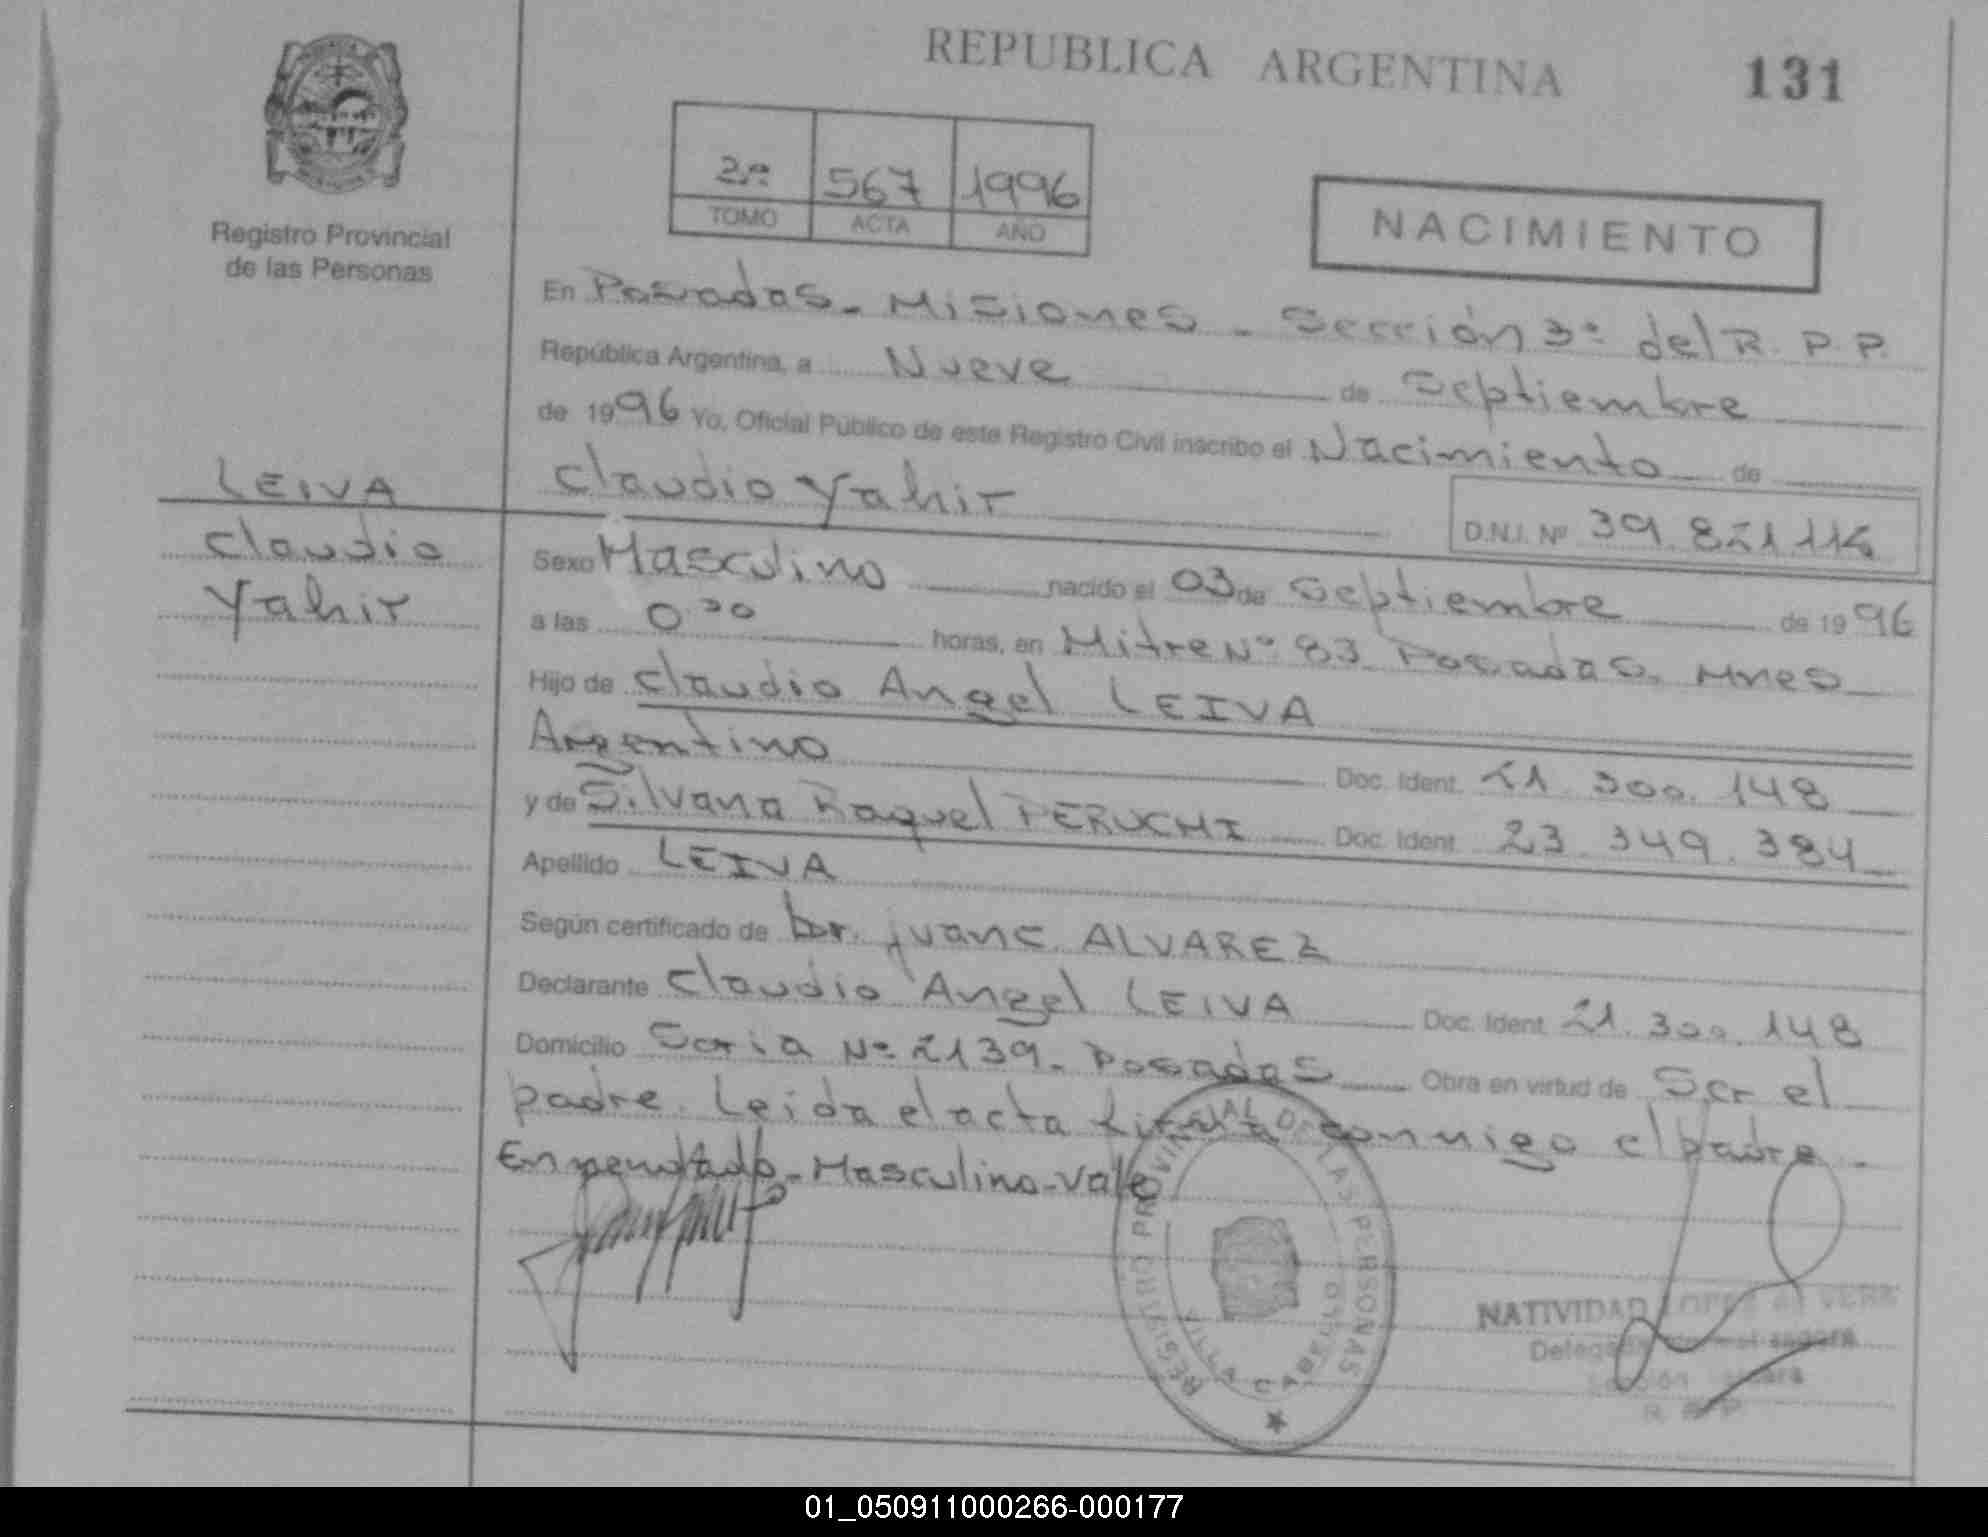 REPUBLICA ARGENTINA
131
2º 567 1996
TOMO ACTA AÑO
NACIMIENTO
Registro Provincial
de las Personas
En Posadas - Misiones - Sección 3º del R. P. P.
República Argentina, a Nueve de Septiembre
de 1996 Yo, Oficial Público de este Registro Civil inscribo el Nacimiento de
Claudio Yahir
D.N.I. Nº 39.821.114
LEIVA
Claudio
Yahir
Sexo Masculino nacido el 03 de Septiembre de 1996
a las horas, en Mitre Nº 83 Posadas. Mnes
Hijo de Claudio Angel LEIVA
Argentino Doc. Ident. 21.300.148
y de Silvana Raquel PERUCHI Doc. Ident. 23.349.384
Apellido LEIVA
Según certificado de Dr. Juan C. ALVAREZ
Declarante Claudio Angel LEIVA Doc. Ident. 21.300.148
Domicilio Soria Nº 2139 - Posadas Obra en virtud de Ser el
padre. Leida el acta firma conmigo el padre.
Enmendado - Masculino - Vale
REGISTRO PROVINCIAL DE LAS PERSONAS
VILLA CABELLO
NATIVIDAD LOPEZ
R. P. P.
01_050911000266-000177